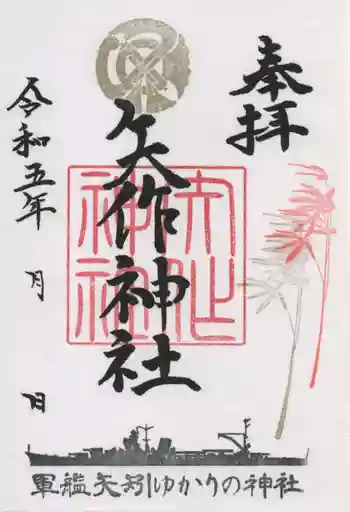 奉拝
矢作神社
矢作神社
令和五年 月 日
軍艦矢矧ゆかりの神社